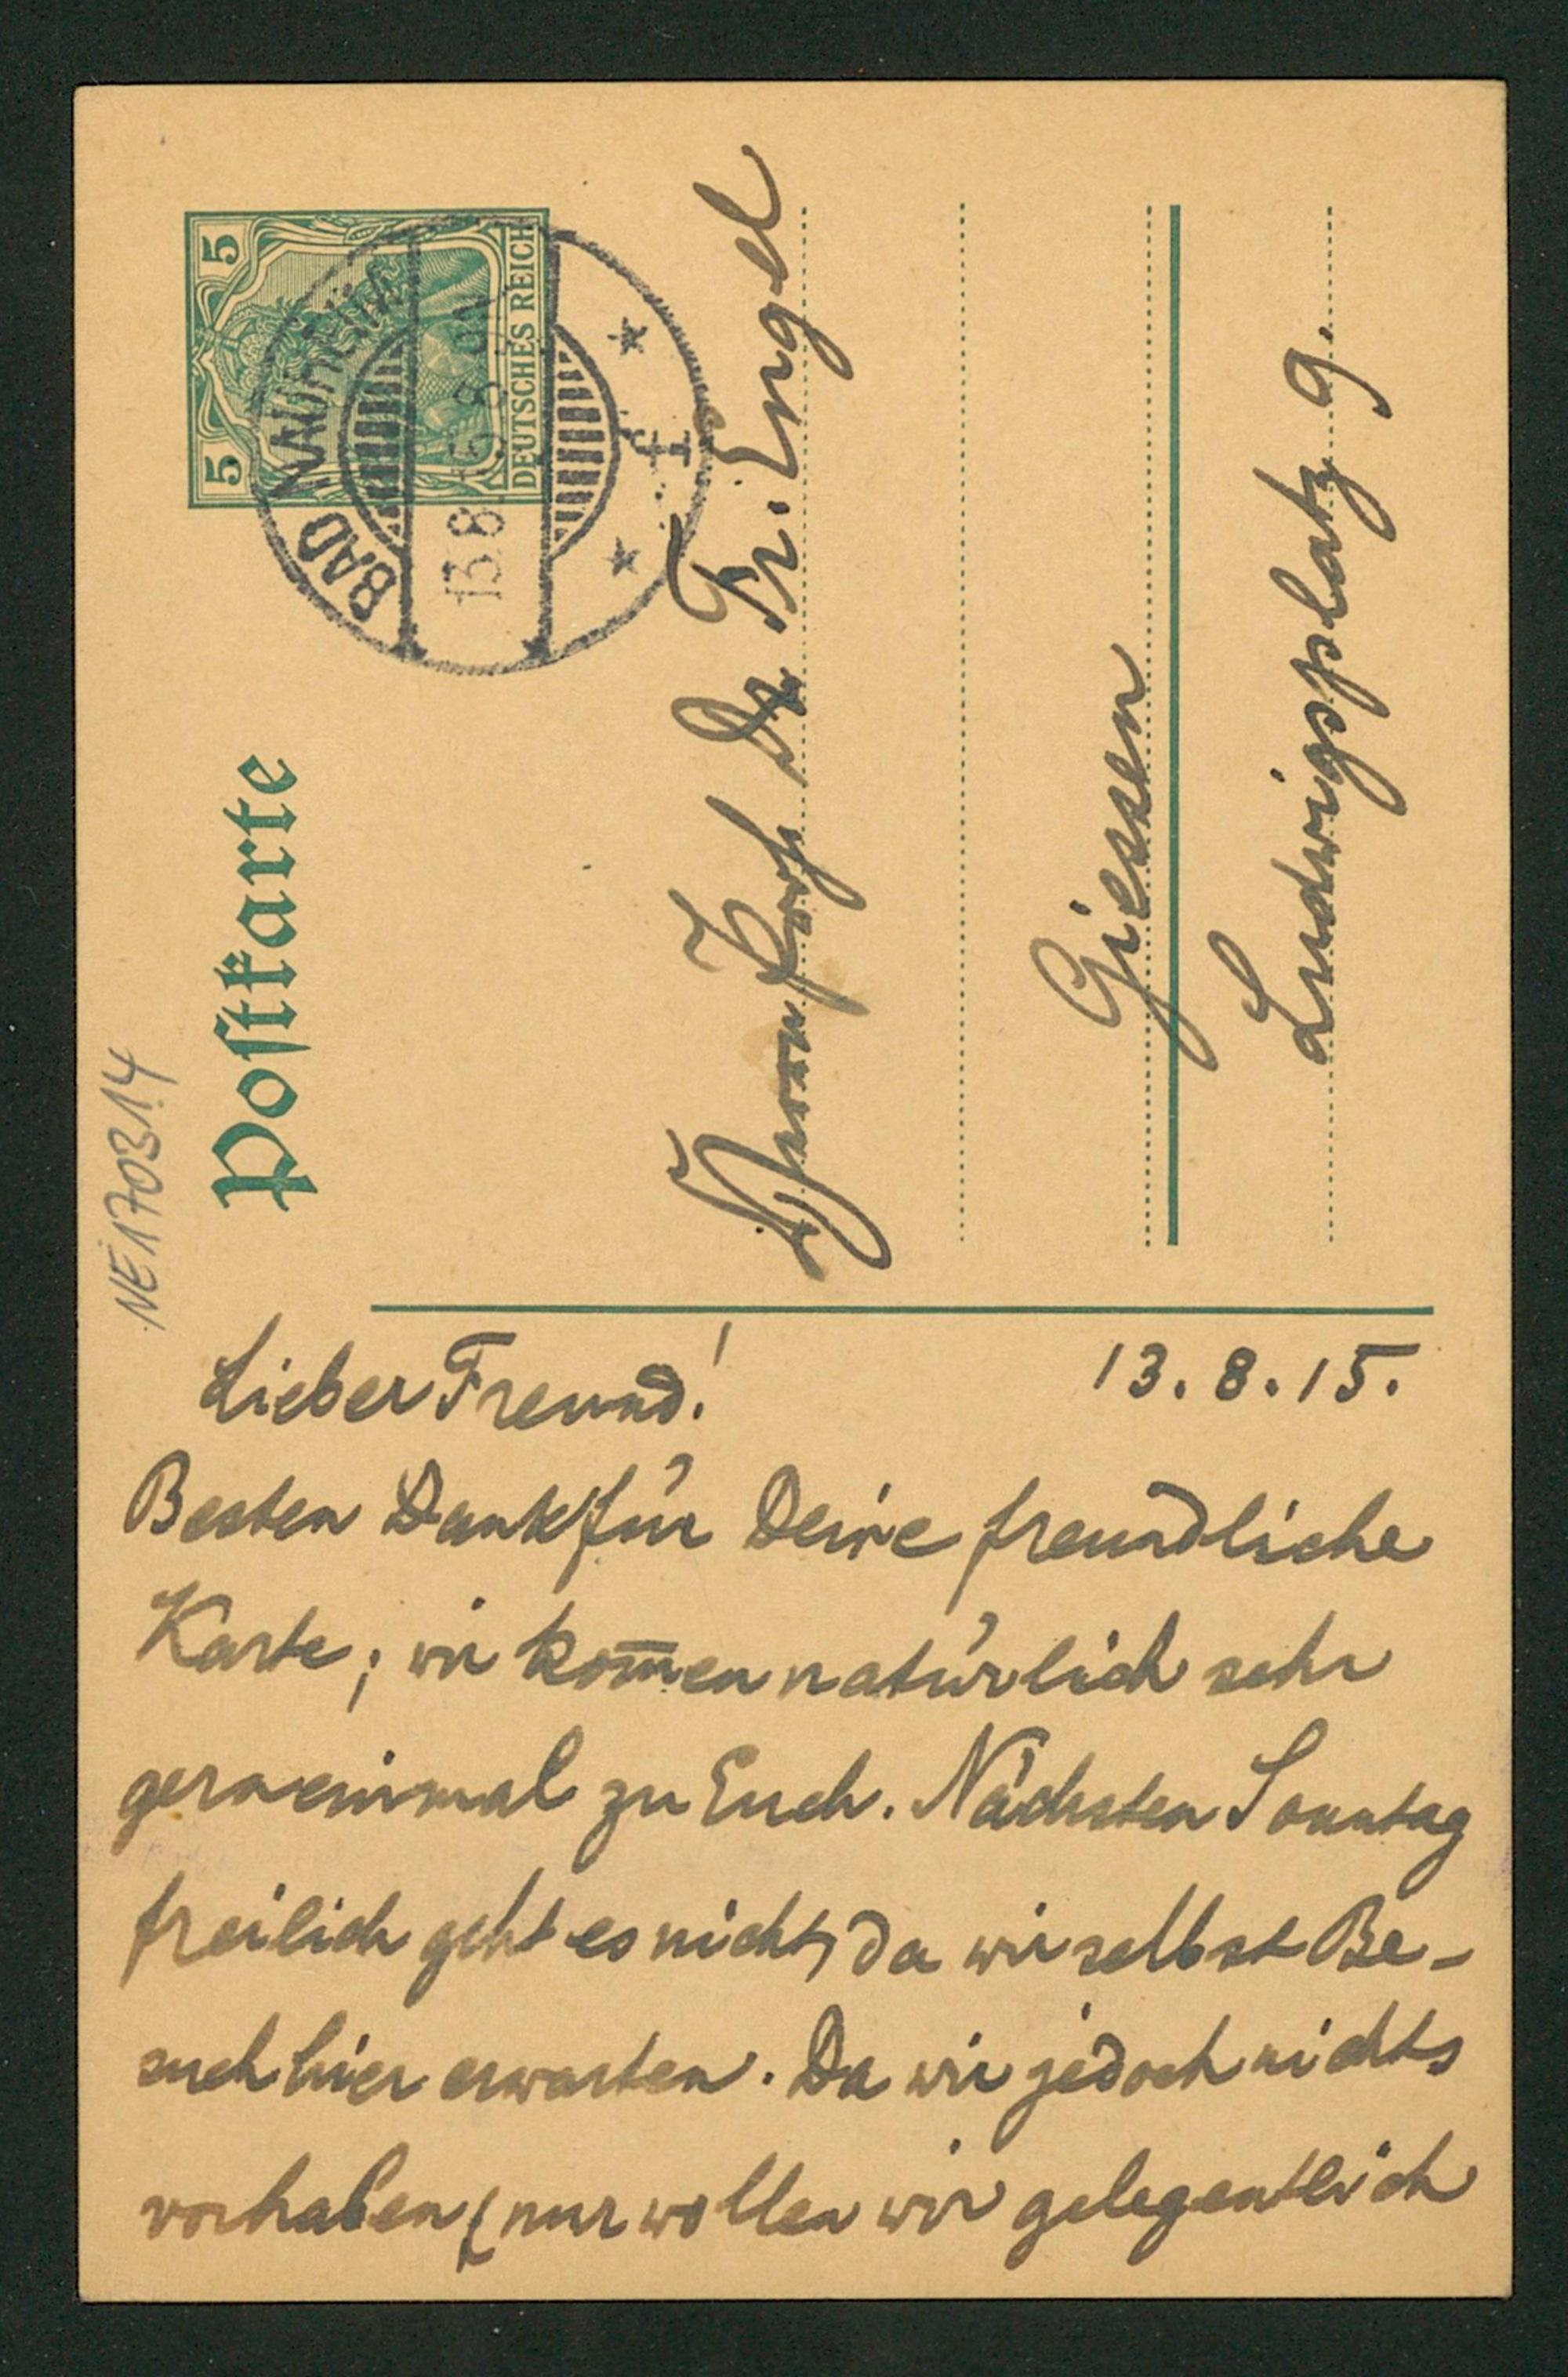 NE170314
Postkarte
5 5
DEUTSCHES REICH
BAD NAUHEIM
13.8.15.8-9N
* f *
Herrn Prof Dr Fr. Engel
Giessen
Ludwigsplatz 9.
13.8.15.
Lieber Freund!
Besten Dank für Deine freundliche
Karte; wir kom̅en natürlich sehr
gern einmal zu Euch. Nächsten Sonntag
freilich geht es nicht, da wir selbst Be-
such hier erwarten. Da wir jedoch nichts
vorhaben (nur wollen wir gelegentlich